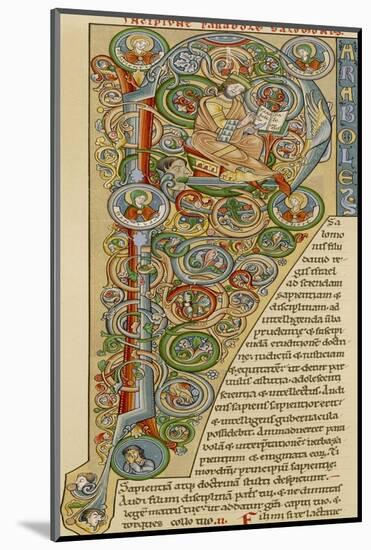 INCIPIUNT PARABOLE SALOMONIS.
PARABOLES
Sa
lomo
nis filii
david re
gis israel
ad sciendam
sapientiam &
disciplinam. ad
intelligenda uba
prudentie. & suscipi
endā eruditionē doctri
ne: iudiciū & iusticiam
& equitatē: ut detur par
uulis astutia. adolescenti
scientia & intellectus. Audi
ens sapiens sapientior erit:
& intelligens gubernacula
possidebit. Animaduertet para
bolā & interpretationē: uerba sa
pientium & enigmata eorum. Ti
mor dn̄i principiū sapientie.
Sapientiā atq; doctrinā stulti despiciunt.
Audi fili mi disciplinā patris tui. & ne dimittas
legē matris tue: ut addatur gratia capiti tuo. &
torques collo tuo. Fili mi si te lactaue